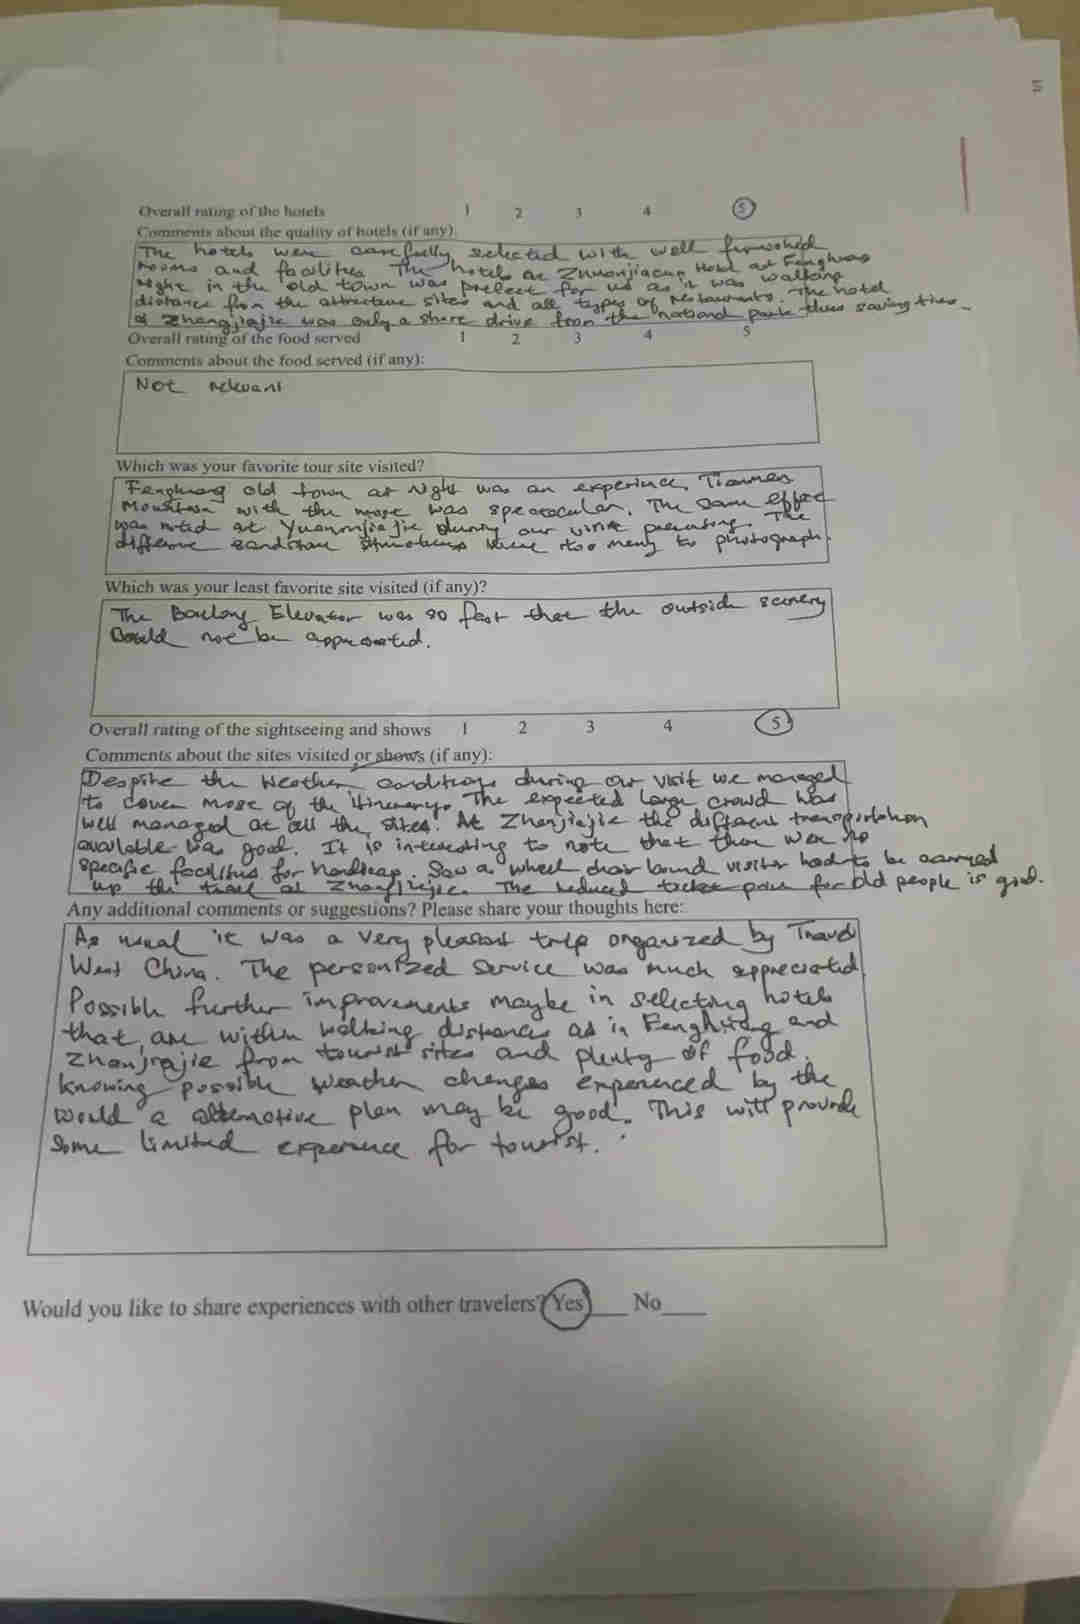 Overall rating of the hotels 1 2 3 4 5
Comments about the quality of hotels (if any)
The hotels were carefully selected with well furnished
rooms and facilities The hotels at Hotel at Fenghuang
right in the old town was prefect for us as it was walking
distance from the attractive sites and all types of restaurants. The hotel
at Zhangjiajie was only a short drive from the national park thus saving time
Overall rating of the food served 1 2 3 4 5
Comments about the food served (if any):
Not relevant
Which was your favorite tour site visited?
Fenghuang old town at night was an experience, Tianmen
Mountain with the was spectacular. The same effect
was noted at Yuanmjiajie during our visit The
different sandstone structures were too many to photograph.
Which was your least favorite site visited (if any)?
The Bailong Elevator was so fast that the outside scenery
Could not be appreciated.
Overall rating of the sightseeing and shows 1 2 3 4 5
Comments about the sites visited or shows (if any):
Despite the weather conditions during our visit we managed
to cover most of the itinerary. The expected large crowd was
well managed at all the sites. At Zhanjiajie the different transportation
available was good. It is interesting to note that there were no
specific facilities for handicap. Saw a wheel chair bound visitor had to be carried
up the trail at Zhangjiajie. The reduced ticket price for old people is good.
Any additional comments or suggestions? Please share your thoughts here:
As usual it was a very pleasant trip organized by Travel
West China. The personized service was much appreciated
Possible further improvements maybe in selecting hotels
that are within walking distance as in Fenghuang and
Zhanjiajie from tourist sites and plenty of food.
Knowing possible weather changes experienced by the
would a alternative plan may be good. This will provide
some limited experience for tourist.
Would you like to share experiences with other travelers? Yes___ No____